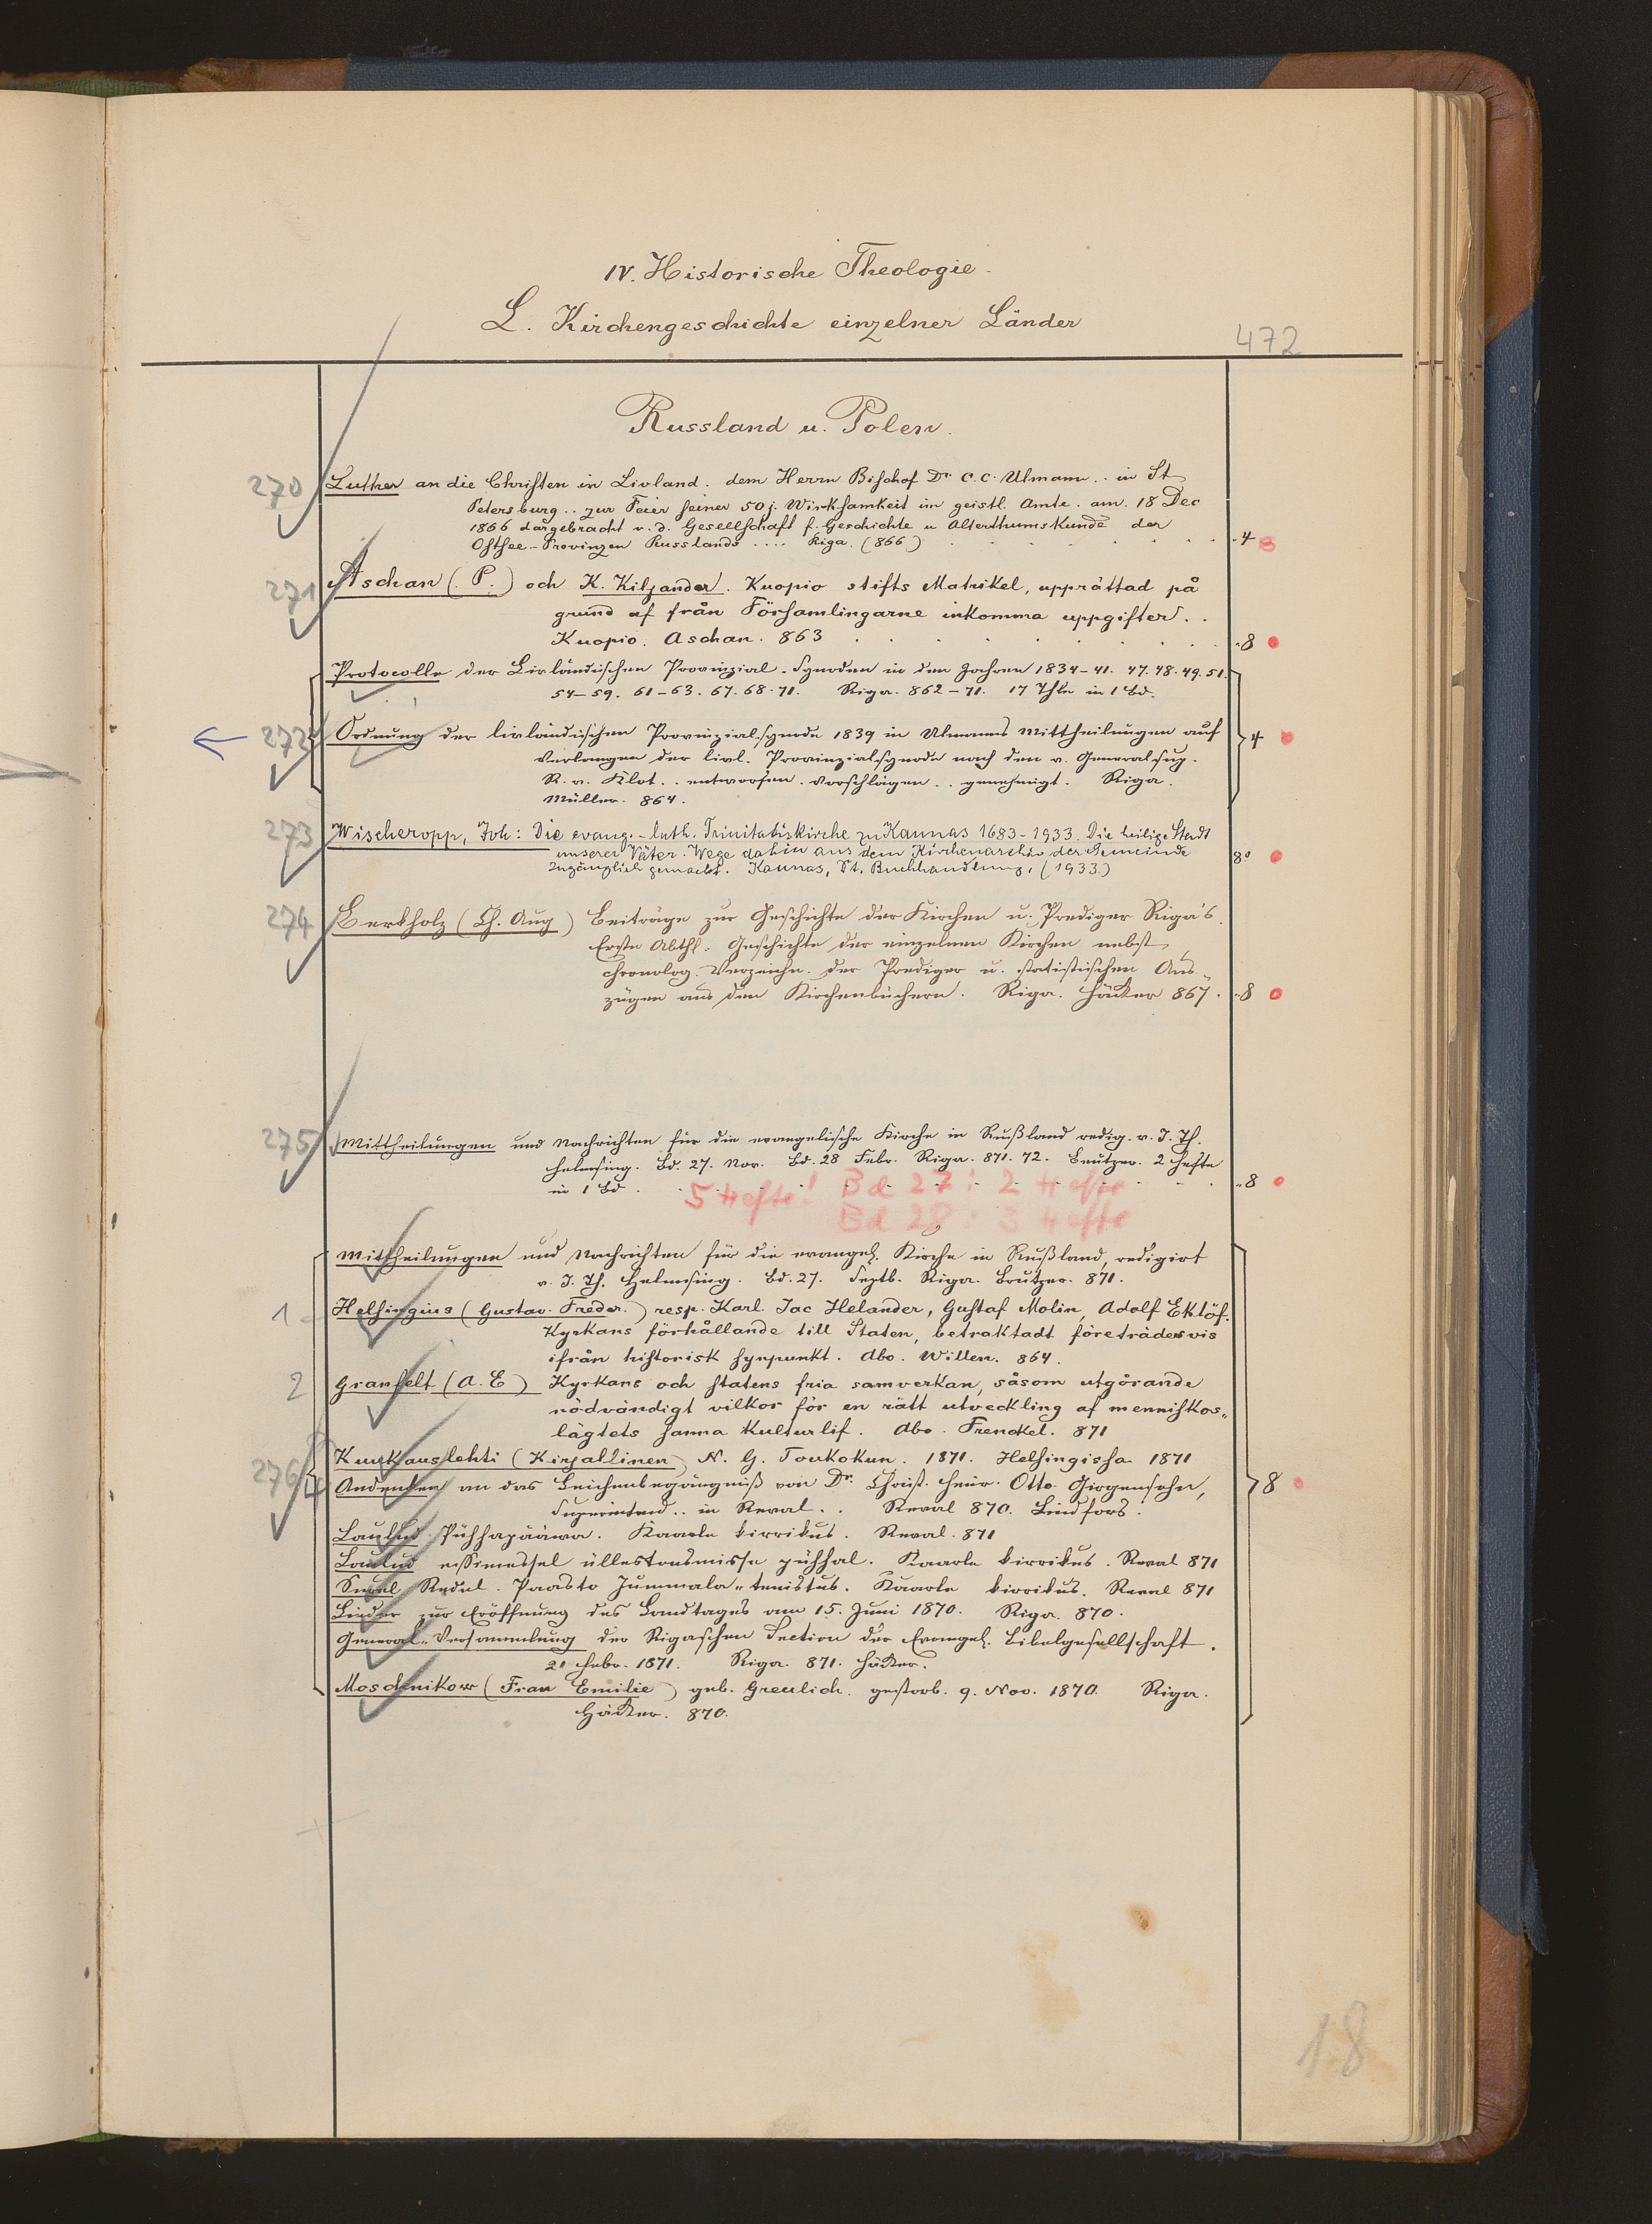 IV. Historische Theologie.
L. Kirchengeschichte einzelner Länder
472
Russland u. Polen.
270 Luther an die Christen in Livland. dem Herrn Bischof Dr. C. C. Ulmann .. in St
Petersburg .. zur Feier seiner 50 j. Wirksamkeit im geistl. Amte. am. 18 Dec
1866 dargebracht v. d. Gesellschaft f. Geschichte u Alterthumskunde der
Ostsee-Provinzen Russlands .... Riga. (866) 4
271 Aschan (P.) och K. Kiljander. Kuopio stifts Matrikel, upprättad på
grund af från Församlingarne inkomma uppgifter . .
Kuopio. Aschan. 863 8
Protocolle der Livländischen Provinzial-Synoden in den Jahren 1834-41. 47. 48. 49. 51.
54-59. 61-63. 67. 68. 71. Riga. 862-71. 17 Thle in 1 Bd.
272 Ordnung der livländischen Provinzialsynode 1839 in Ulmanns Mittheilungen auf 4
Verlangen der livl. Provinzialsynode nach den v. Generalsup.
R. v. Klot .. entworfen. Vorschlägen .. genehmigt. Riga.
Müller. 864.
273 Wischeropp, Joh: Die evang.-luth. Trinitatiskirche zu Kaunas 1683-1933. Die heilige Stadt
unserer Väter. Wege dahin aus dem Kirchenarchiv der Gemeinde 8°
zugänglich gemacht. Kaunas, Pt. Buchhandlung, (1933.)
274 Berkholz (Ch. Aug) Beiträge zur Geschichte der Kirchen u. Prediger Riga's.
Erste Abthl. Geschichte der einzelnen Kirchen nebst
chronolog. Verzeichn. der Prediger u. statistischen Aus-
zügen aus den Kirchenbüchern. Riga. Häcker 867. 8
275 Mittheilungen und Nachrichten für die evangelische Kirche in Rußland redig. v. J. Th.
Helmsing. Bd. 27. Nov. Bd. 28 Febr. Riga. 871. 72. Brutzer. 2 Hefte
in 1 Bd. 8
5 Hefte! Bd 27: 2 Hefte
Bd 28: 3 Hefte
Mittheilungen und Nachrichten für die evangel. Kirche in Rußland, redigirt
v. J. Th. Helmsing. Bd. 27. Septb. Riga. Brutzer. 871.
1 Helsingius (Gustav. Freder.) resp. Karl. Jac Helander, Gustaf Molin, Adolf Eklöf.
Kyrkans förhållande till Staten, betraktadt företrädesvis
ifrån historisk synpunkt. Abo. Willen. 864.
2 Granfelt (A. E) Kyrkans och statens fria samverkan, såsom utgörande
nödvändigt vilkor för en rätt utveckling af menniskos-
lägtets sanna Kulturlif. Abo. Frenckel. 871
Kuukauslehti (Kirjallinen) N. G. Toukokun. 1871. Helsingissa 1871
276 Andenken an das Leichenbegängniß von Dr. Christ. Heinr. Otto Girgensohn, 8
Superintend .. in Reval . . Reval 870. Lindfors.
Laulud Pühhapääwa. Kaarle kirrikus. Reval. 871
Laulud essimessel üllestousmisse pühhal. Kaarle kirrikus. Reval 871
Suurel Redel. Paasto Jummala-tenistus. Kaarle kirrikus. Reval 871
Lieder zur Eröffnung des Landtages am 15. Juni 1870. Riga. 870.
General-Versammlung der Rigaschen Section der Evangel. Bibelgesellschaft.
21 Febr. 1871. Riga. 871. Häcker.
Moschnikow (Frau Emilie) geb. Greulich. gestorb. 9. Nov. 1870. Riga.
Häcker. 870.
18